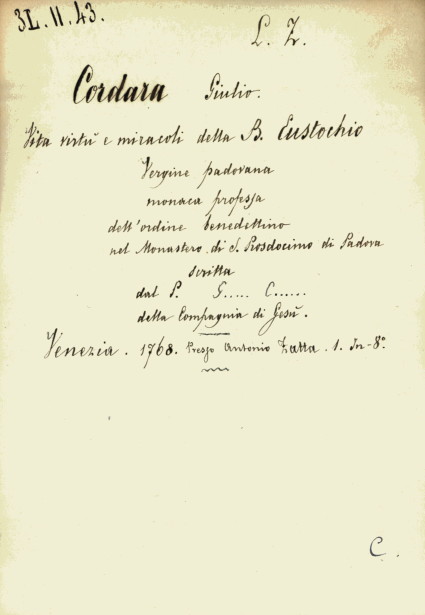 3L.11.43.
L. Z.
Cordara Giulio.
Vita virtù e miracoli della B. Eustochio
Vergine padovana
monaca professa
dell'ordine benedettino
nel Monastero di S. Prosdocimo di Padova
scritta
dal P. G..... C......
della Compagnia di Gesù.
Venezia. 1768. Presso Antonio Zatta. 1. In-8°
C.